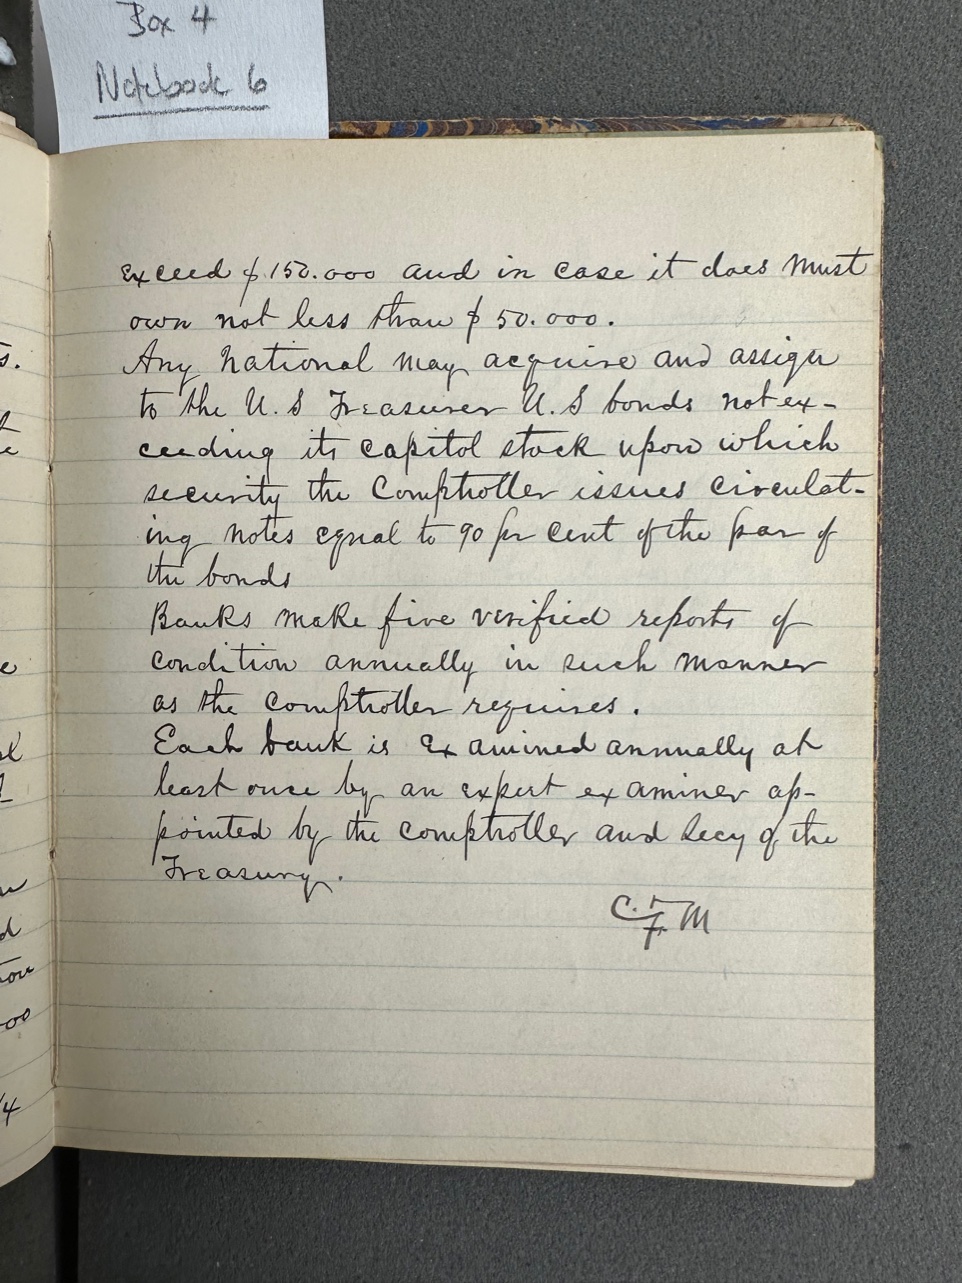 Box 4
Notebook 6
exceed $150.000 and in case it does must
own not less than $50.000.
Any National may acquire and assign
to the U.S Treasurer U.S bonds not ex-
ceeding its capitol stock upon which
security the Comptroller issues circulat-
ing notes equal to 90 pr cent of the par of
the bonds
Banks make five verified reports of
condition annually in such manner
as the comptroller requires.
Each bank is examined annually at
least once by an expert examiner ap-
pointed by the comptroller and Secy of the
Treasury.
C.F.M